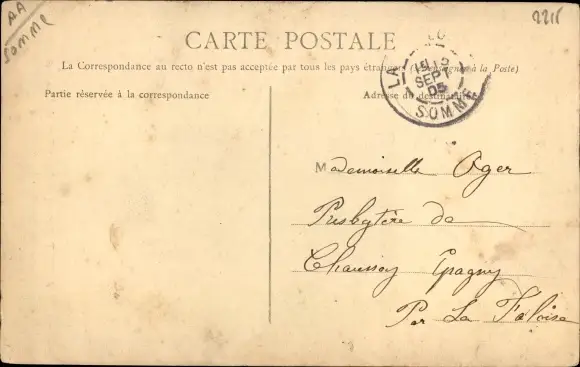 AA
SOMME
2215
CARTE POSTALE
La Correspondance au recto n'est pas acceptée par tous les pays étrangers à la Poste)
Partie réservée à la correspondance
Adresse du destinataire
LA
SEPT
05
SOMME
Mademoiselle Oger
Presbytère de
Chaussoy Epagny
Par La Faloise